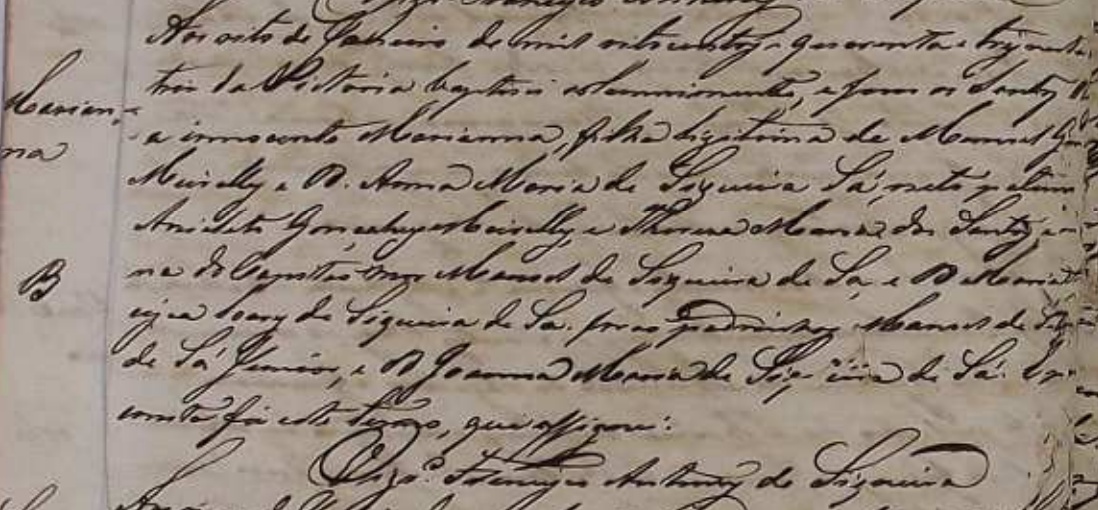 Aos oito de Janeiro de mil oitocentos e quarenta e tres na Ma
triz da Victoria baptisei solemnemente, e puz os Santos
Marian-
na
a innocente Marianna, filha legitima de Manoel Gon
Meirelles e D. Anna Maria de Siqueira Sá, neta paterna
Aniceto Gonçalves Meirelles, e Thereza Maria dos Santos, e
na do Capitão mor Manoel de Siqueira de Sá e D. Maria
B
de Siqueira de Sá. foram padrinhos Manoel de
de Sá Junior, e D. Joanna Maria de Siqueira de Sá. E p
constar fiz este termo, que assignei.
Vigr.º Francisco Antunes de Siqueira